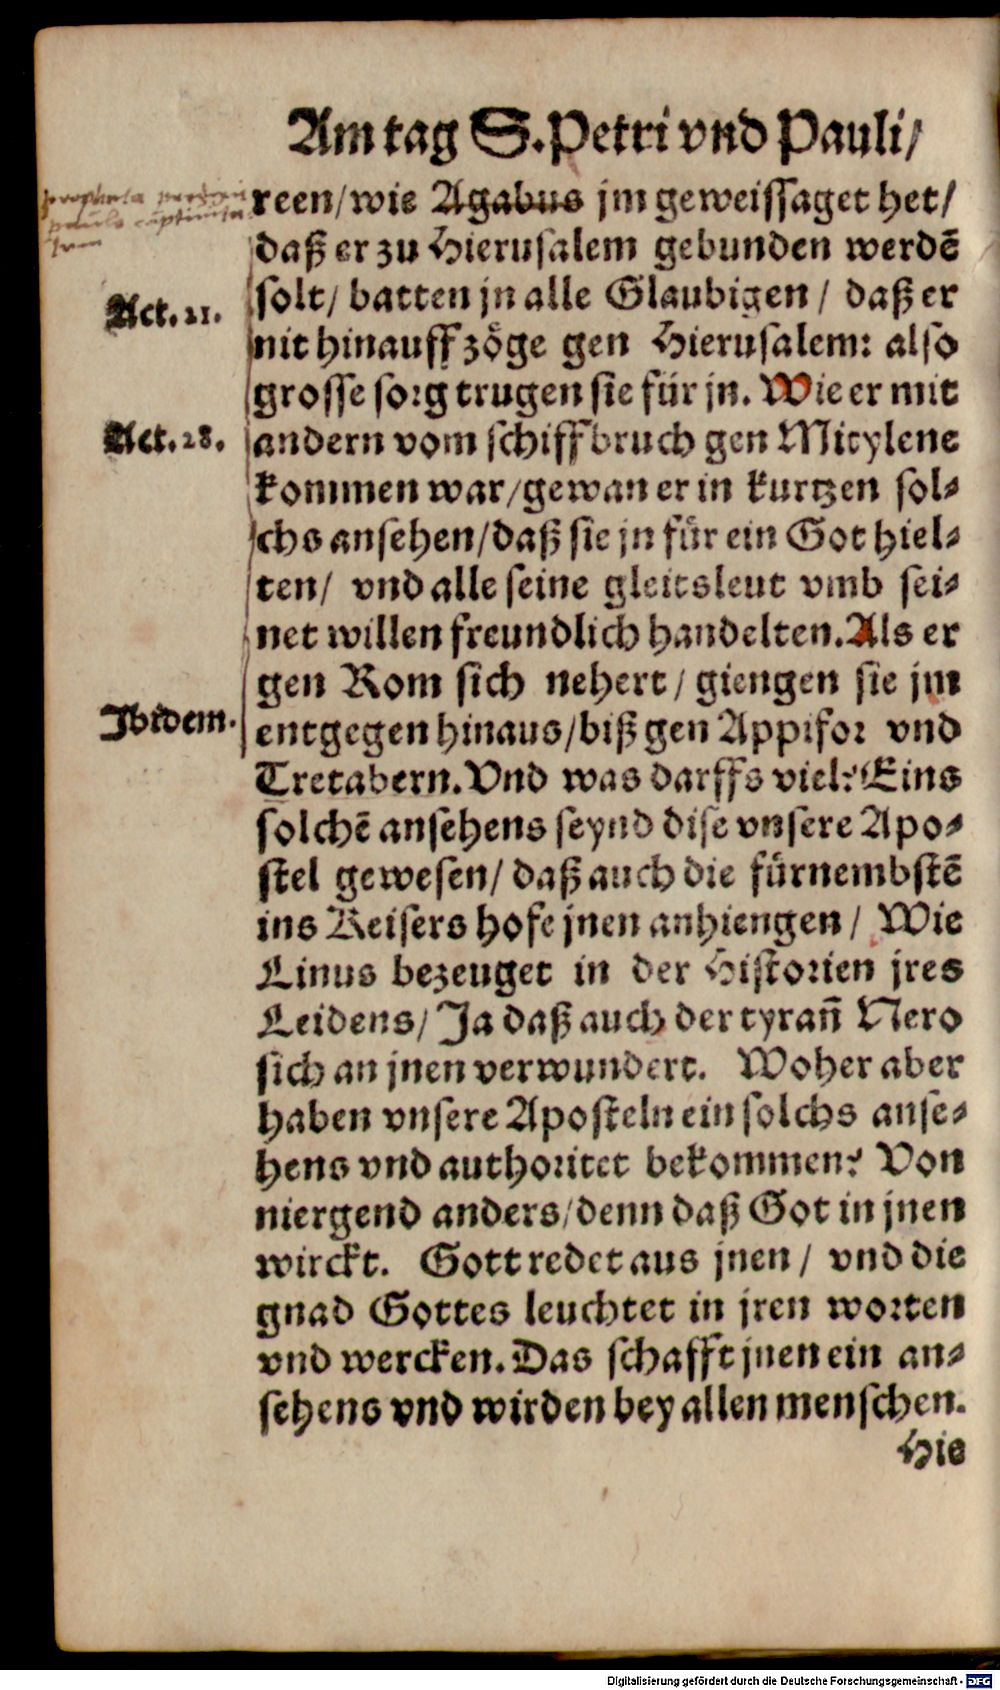 Am tag S. Petri vnd Pauli/
propheta
paulo captiuita
tem
reen/wie Agabus jm geweissaget het/
daß er zu Hierusalem gebunden werdē
Act. 21.
solt/ batten jn alle Glaubigen / daß er
nit hinauff zöge gen Hierusalem: also
grosse sorg trugen sie für jn. Wie er mit
Act. 28.
andern vom schiffbruch gen Mitylene
kommen war/gewan er in kurtzen sol-
chs ansehen/daß sie jn für ein Got hiel-
ten/ vnd alle seine gleitsleut vmb sei-
net willen freundlich handelten. Als er
gen Rom sich nehert / giengen sie jm
Ibidem.
entgegen hinaus/biß gen Appifor vnd
Tretabern. Vnd was darffs viel? Eins
solchē ansehens seynd dise vnsere Apo-
stel gewesen/ daß auch die fürnembstē
ins Keisers hofe jnen anhiengen / Wie
Linus bezeuget in der Historien jres
Leidens/ Ja daß auch der tyrañ Nero
sich an jnen verwundert. Woher aber
haben vnsere Aposteln ein solchs anse-
hens vnd authoritet bekommen? Von
niergend anders/denn daß Got in jnen
wirckt. Gott redet aus jnen / vnd die
gnad Gottes leuchtet in jren worten
vnd wercken. Das schafft jnen ein an-
sehens vnd wirden bey allen menschen.
Hie
Digitalisierung gefördert durch die Deutsche Forschungsgemeinschaft - DFG